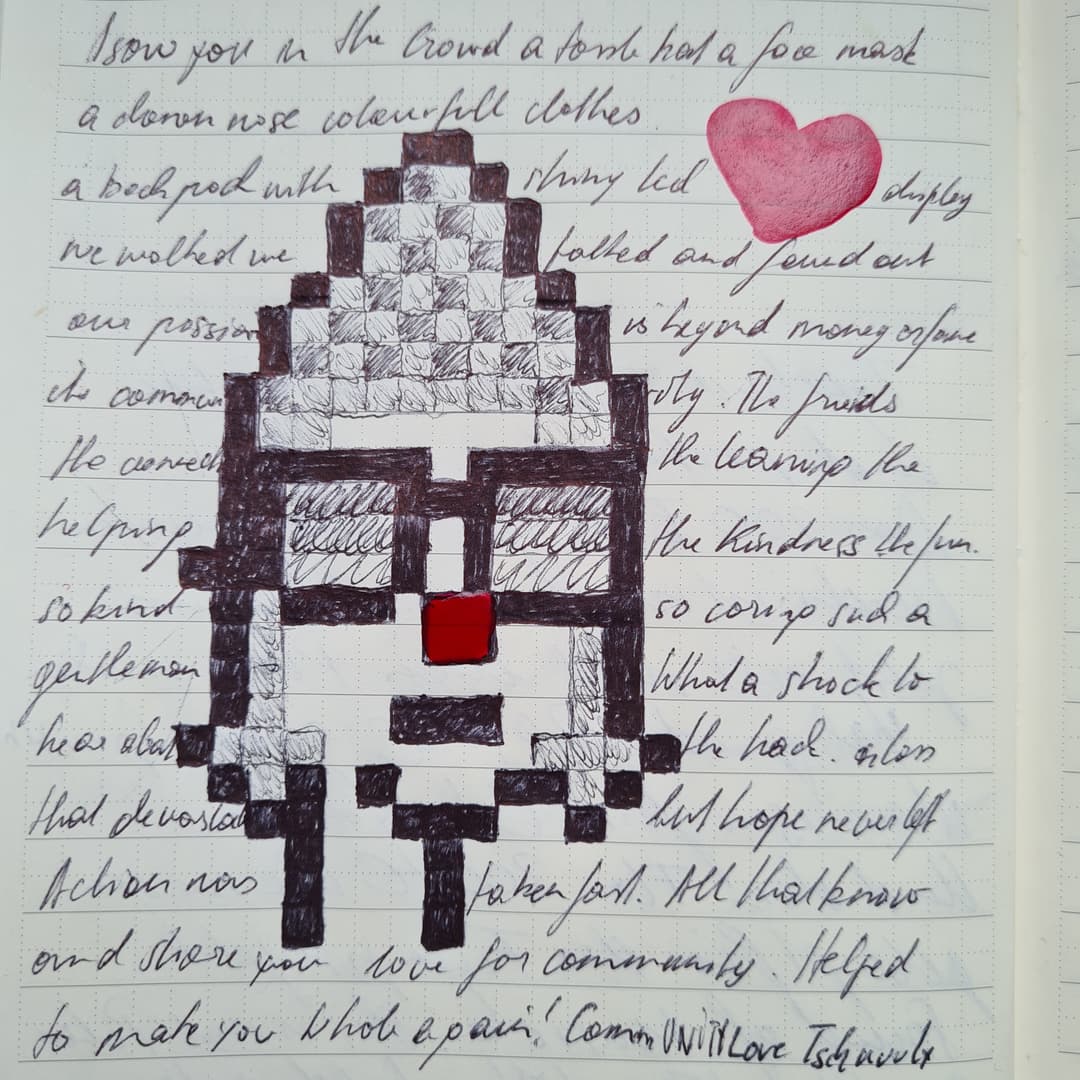 I saw you in the Crowd a tassle hat a face mask
a clown nose colourfull clothes
a back pack with shiny led display
we walked we talked and found out
our passion is beyond money or fame
the commun ity. The friends
the connect the learning the
helping the Kindness the fun.
so kind so caring such a
gentleman What a shock to
hear about the hack. a loss
that devastat but hope never left
Action was taken fast. All that know
and share your love for community. Helped
to make you Whole again! CommUNITY Love Tschuuulx